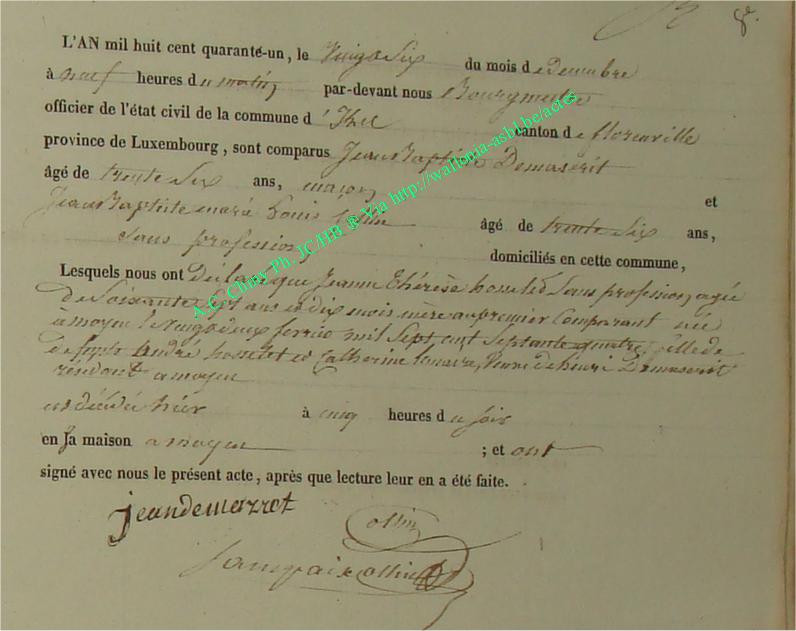 8.
L'AN mil huit cent quarante-un, le vingt Six du mois de decembre
à neuf heures du matin par-devant nous Bourgmestre
officier de l'état civil de la commune d' Izel canton de florenville
province de Luxembourg, sont comparus Jean Baptiste Demaserit
âgé de trente Six ans, maçon et
Jean Baptiste marie Louis ollin âgé de trente Six ans,
Sans profession domiciliés en cette commune,
Lesquels nous ont déclaré que Jeanne Thérèse hosselet Sans profession agée
de Soixante Sept ans et dix mois mère au premier Comparant née
à moyen le vingt deux fevrier mil Sept cent Septante quatre, fille de
defunts André hosselet et Catherine veuve de henri Demaserit
residant a moyen
est décédée hier à cinq heures du soir
en Sa maison a moyen ; et ont
signé avec nous le présent acte, après que lecture leur en a été faite.
jeandemazret
ollin
ollin
A.C. Chiny Ph. JC/HB ® Via http://wallonia-asbl.be/actes